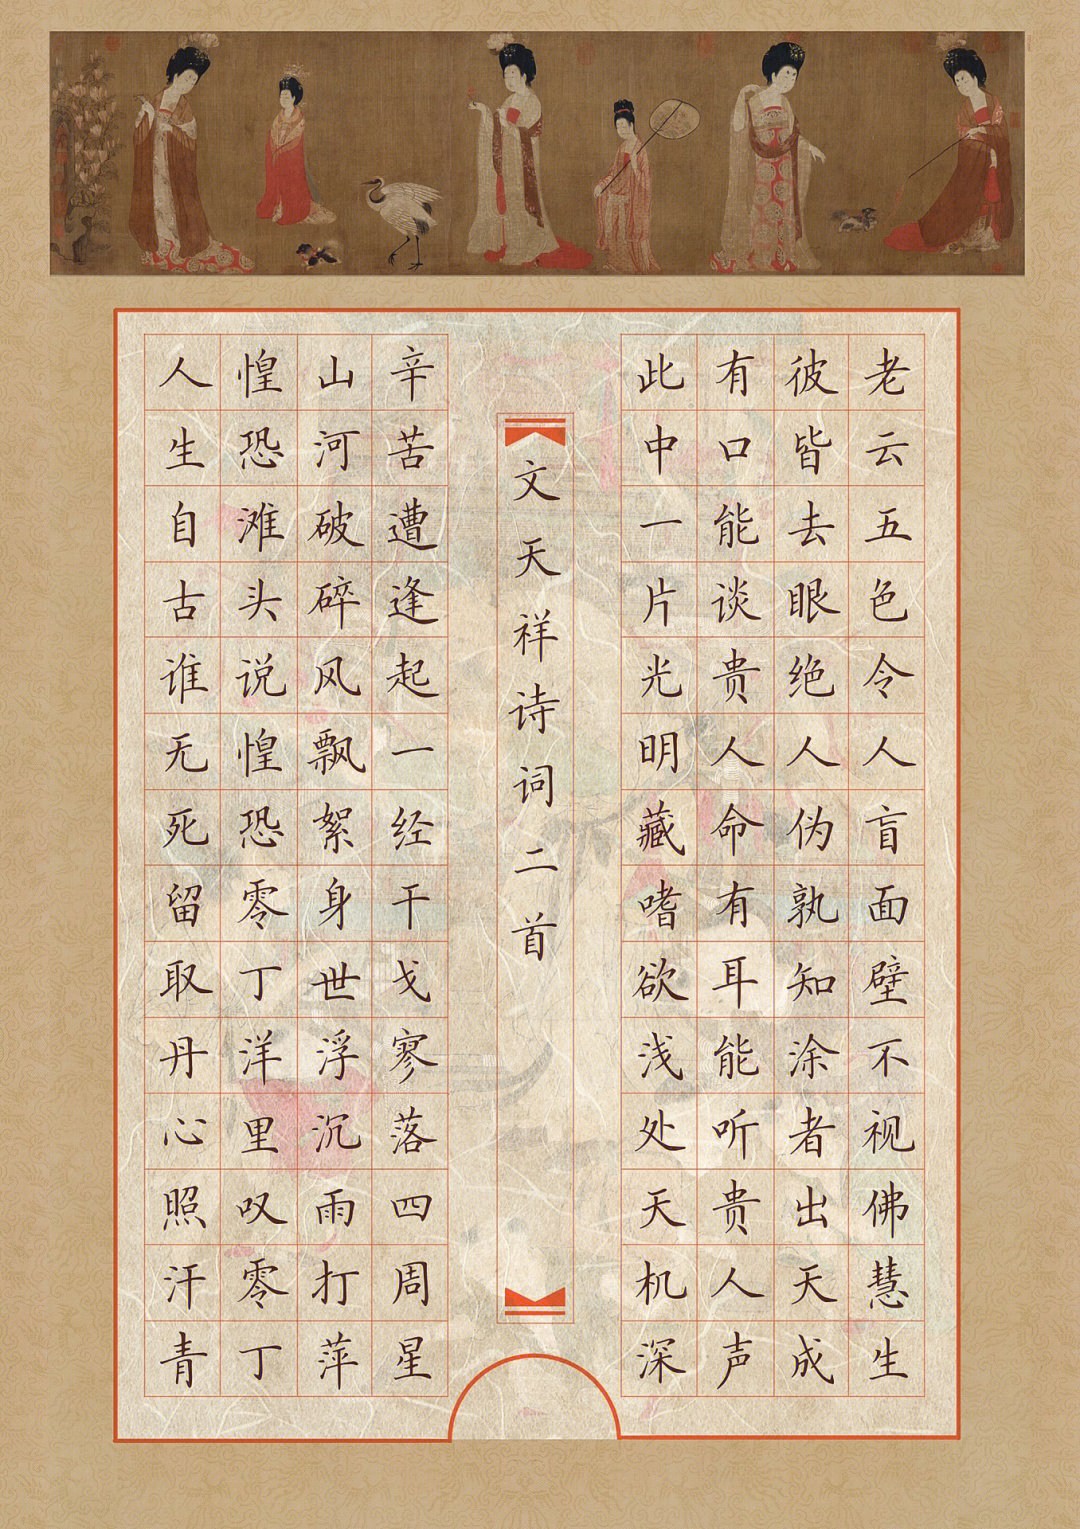 老云五色令人盲面壁不视佛慧生
彼皆去眼绝人伪孰知涂者出天成
有口能谈贵人命有耳能听贵人声
此中一片光明藏嗜欲浅处天机深
文天祥诗词二首
辛苦遭逢起一经干戈寥落四周星
山河破碎风飘絮身世浮沉雨打萍
惶恐滩头说惶恐零丁洋里叹零丁
人生自古谁无死留取丹心照汗青